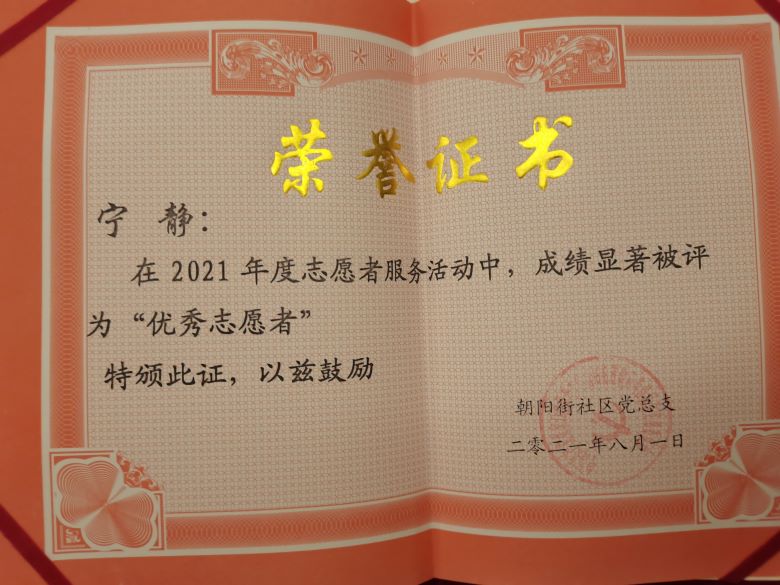 荣誉证书
宁 静：
在 2021 年度志愿者服务活动中，成绩显著被评
为“优秀志愿者”
特颁此证，以兹鼓励
朝阳街社区党总支
二零二一年八月一日